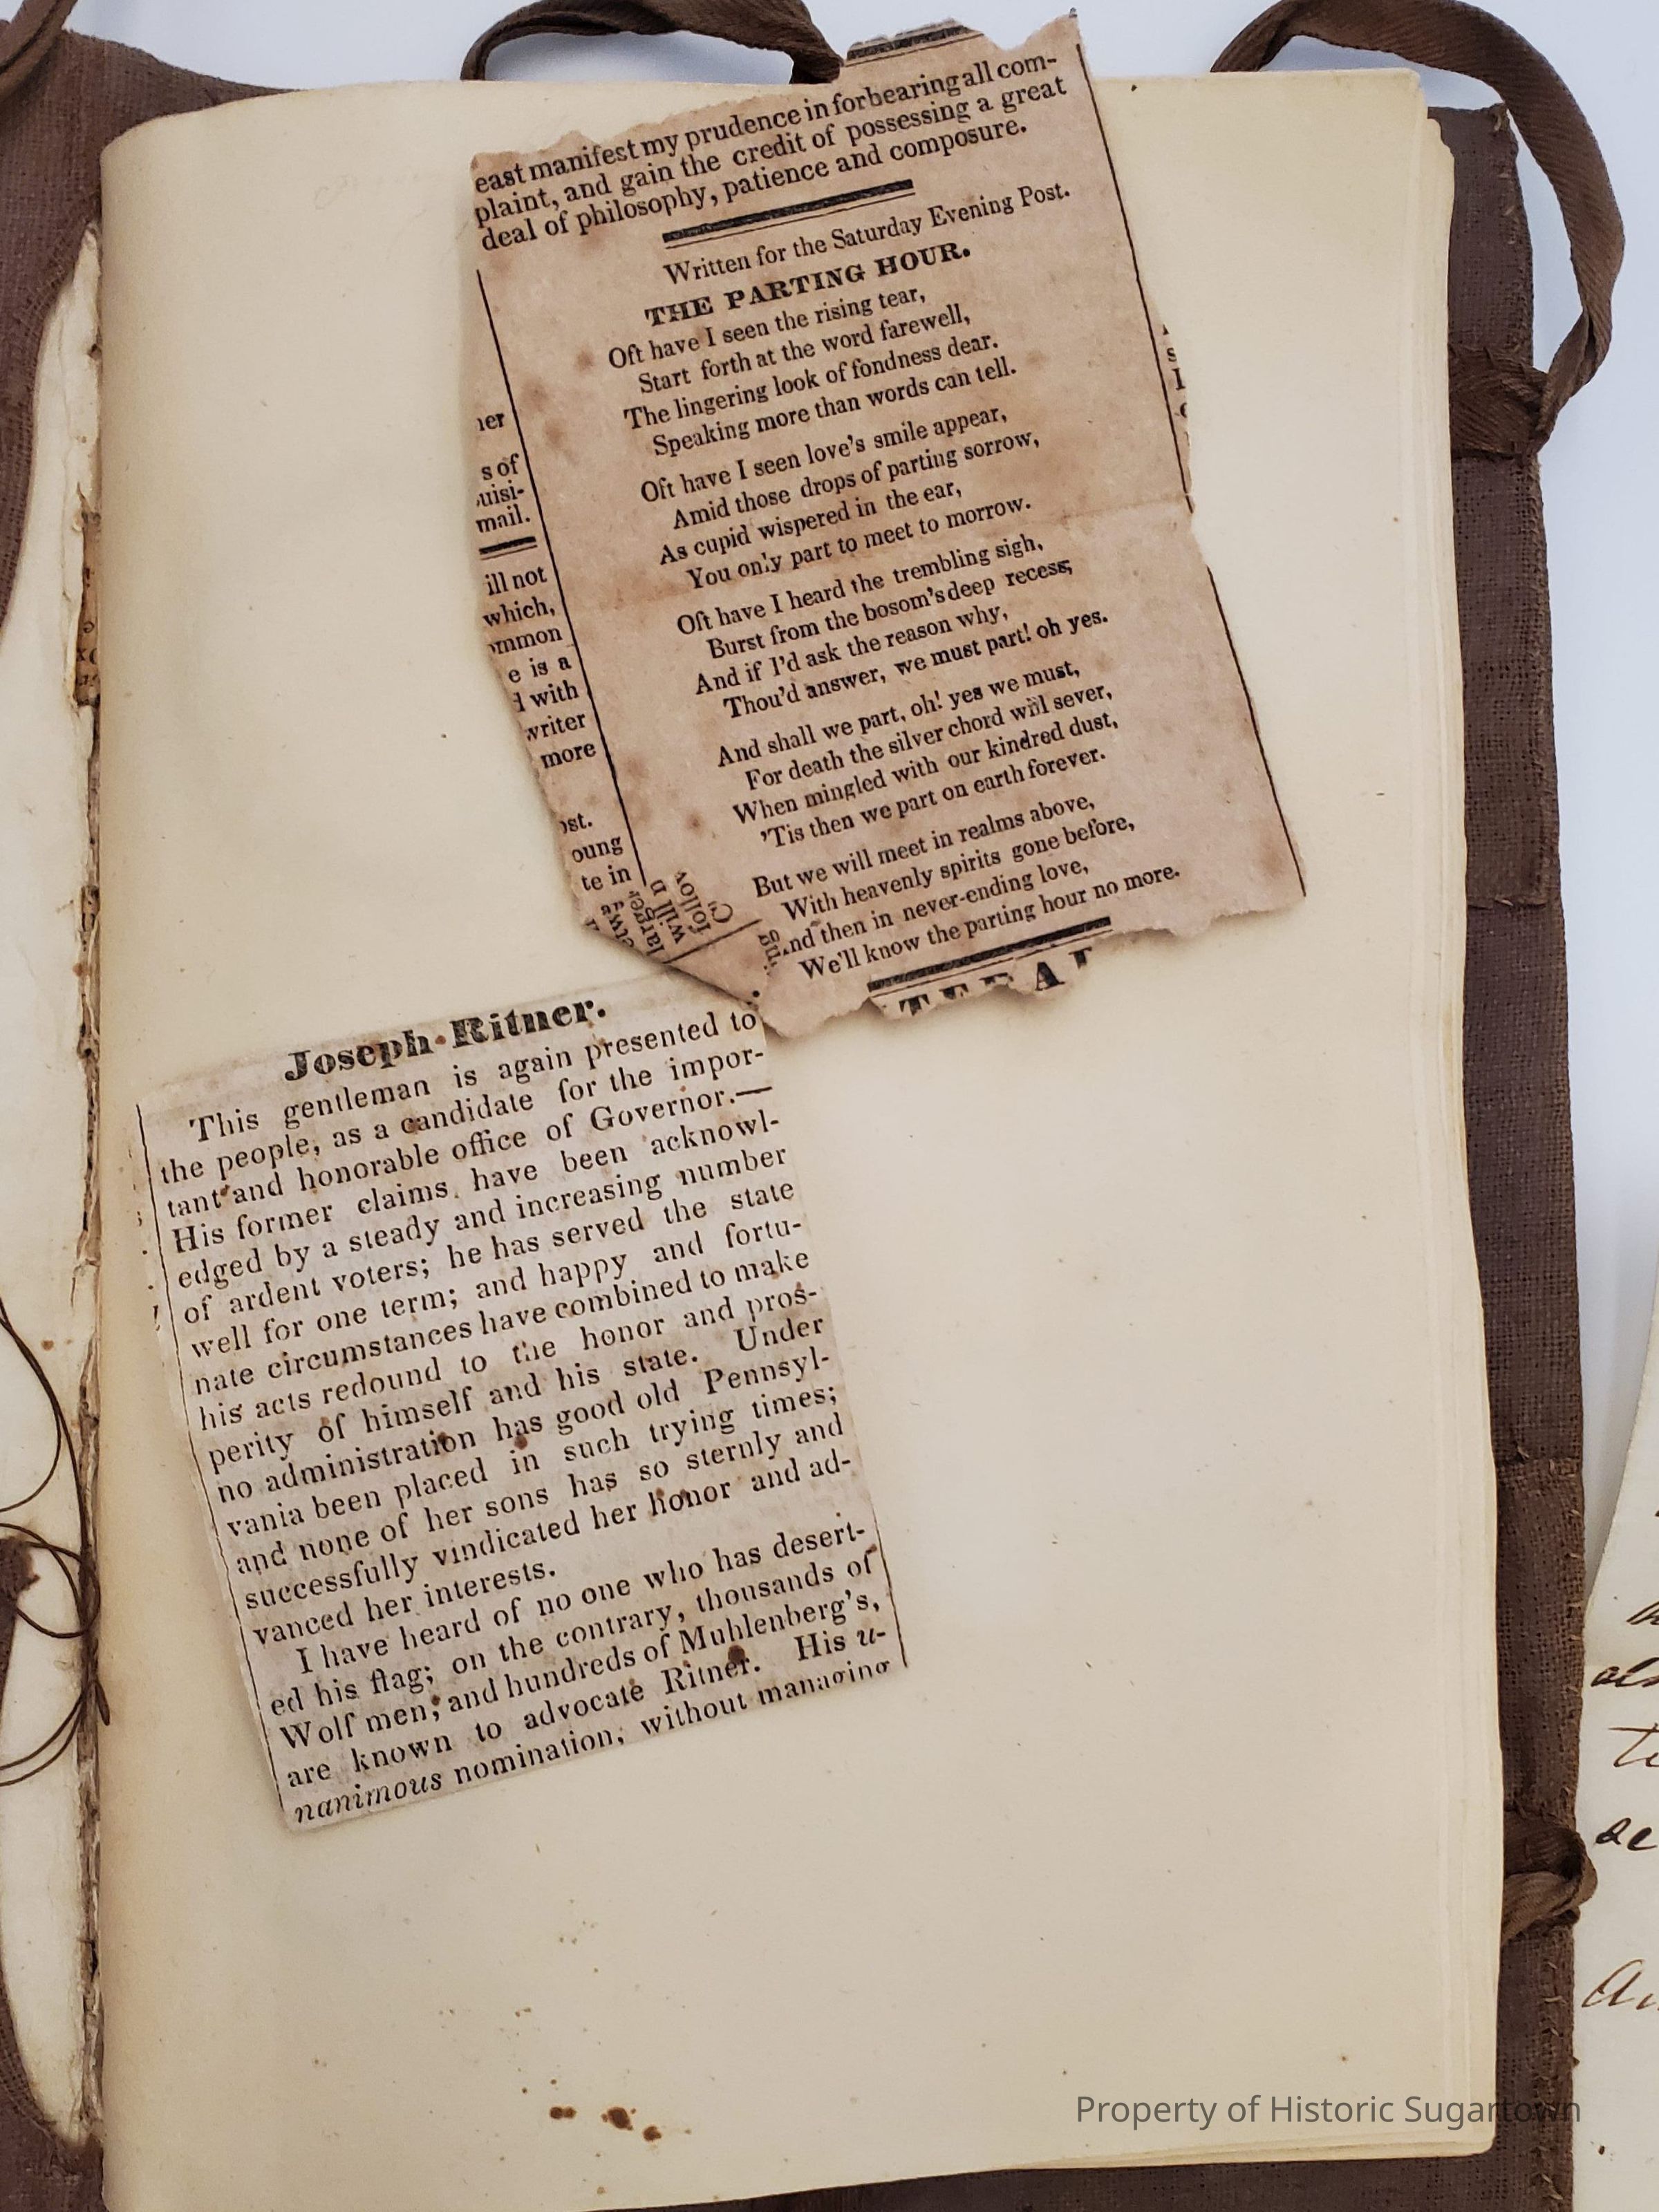 east manifest my prudence in forbearing all com-
plaint, and gain the credit of possessing a great
deal of philosophy, patience and composure.
Written for the Saturday Evening Post.
THE PARTING HOUR.
Oft have I seen the rising tear,
Start forth at the word farewell,
The lingering look of fondness dear.
Speaking more than words can tell.
Oft have I seen love's smile appear,
Amid those drops of parting sorrow,
As cupid wispered in the ear,
You only part to meet to morrow.
Oft have I heard the trembling sigh,
Burst from the bosom's deep recess;
And if I'd ask the reason why,
Thou'd answer, we must part! oh yes.
And shall we part, oh! yes we must,
For death the silver chord will sever,
When mingled with our kindred dust,
'Tis then we part on earth forever.
But we will meet in realms above,
With heavenly spirits gone before,
And then in never-ending love,
We'll know the parting hour no more.
ner
s of
uisi-
mail.
ill not
which,
ommon
e is a
d with
writer
more
ost.
oung
te in
larger
will u
follov
Joseph Ritner.
This gentleman is again presented to
the people, as a candidate for the impor-
tant and honorable office of Governor.—
His former claims have been acknowl-
edged by a steady and increasing number
of ardent voters; he has served the state
well for one term; and happy and fortu-
nate circumstances have combined to make
his acts redound to the honor and pros-
perity of himself and his state. Under
no administration has good old Pennsyl-
vania been placed in such trying times;
and none of her sons has so sternly and
successfully vindicated her honor and ad-
vanced her interests.
I have heard of no one who has desert-
ed his flag; on the contrary, thousands of
Wolf men, and hundreds of Muhlenberg's,
are known to advocate Ritner. His u-
nanimous nomination, without managing
te
se
Property of Historic Sugartown